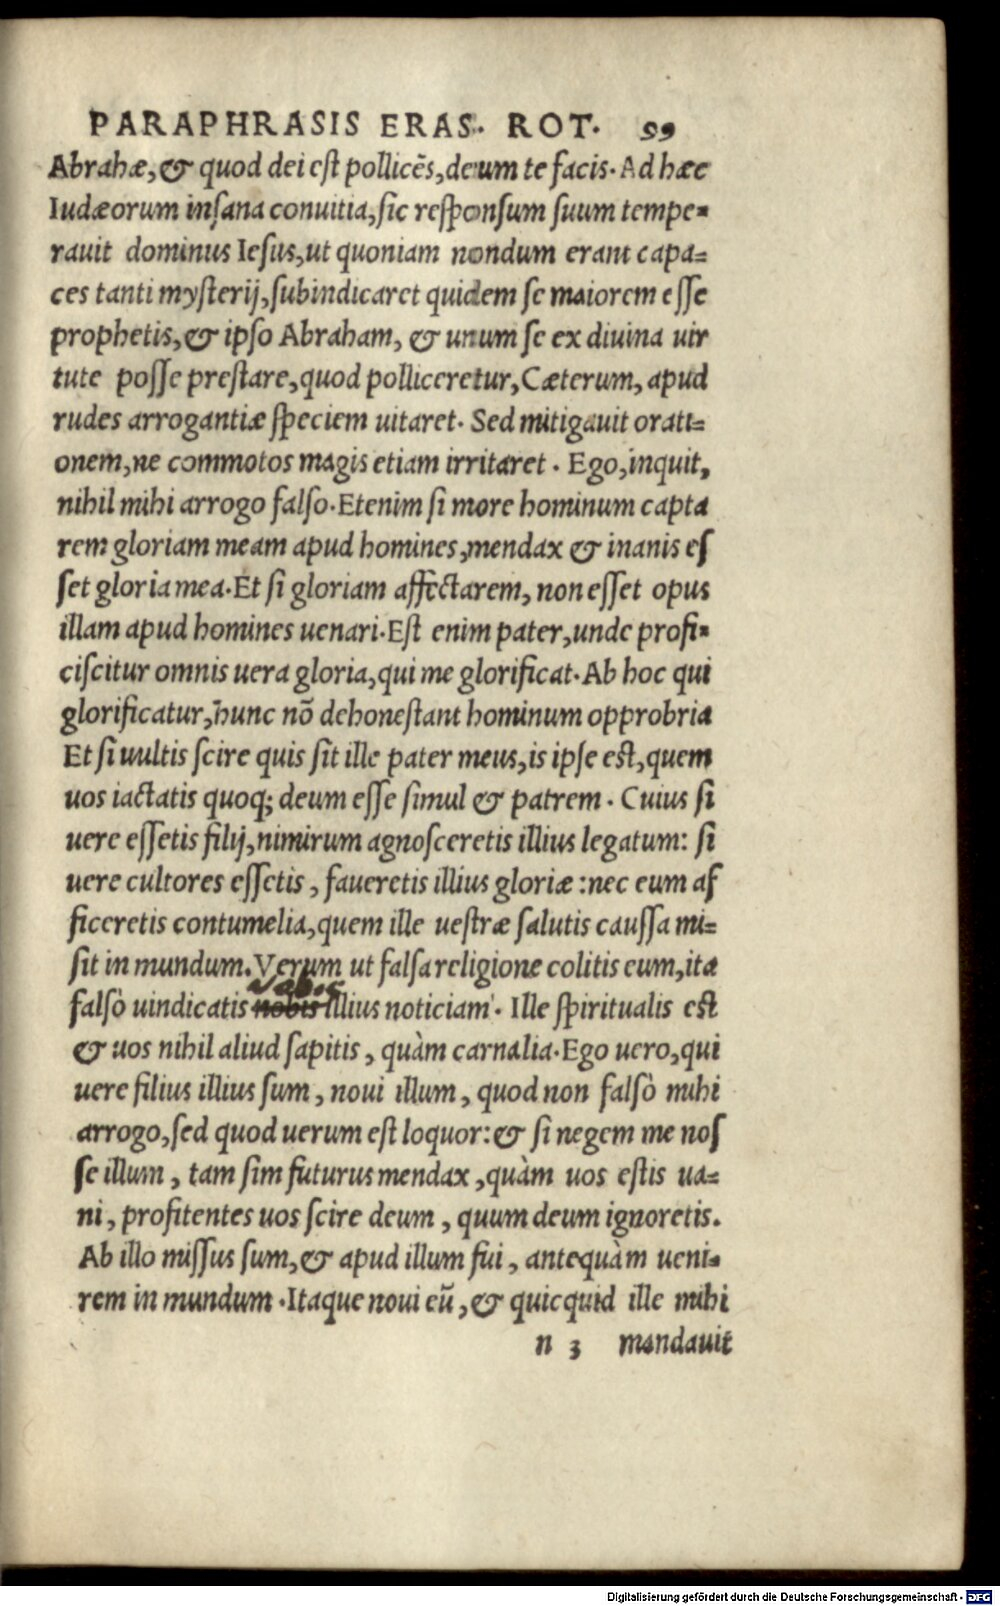 PARAPHRASIS ERAS. ROT. 99
Abrahæ, & quod dei est pollicẽs, deum te facis. Ad hæc
Iudæorum insana conuitia, sic responsum suum tempe=
rauit dominus Iesus, ut quoniam nondum erant capa=
ces tanti mysterij, subindicaret quidem se maiorem esse
prophetis, & ipso Abraham, & unum se ex diuina uir
tute posse prestare, quod polliceretur, Cæterum, apud
rudes arrogantiæ speciem uitaret. Sed mitigauit orati=
onem, ne commotos magis etiam irritaret. Ego, inquit,
nihil mihi arrogo falso. Etenim si more hominum capta
rem gloriam meam apud homines, mendax & inanis es
set gloria mea. Et si gloriam affectarem, non esset opus
illam apud homines uenari. Est enim pater, unde profi=
ciscitur omnis uera gloria, qui me glorificat. Ab hoc qui
glorificatur, hunc nõ dehonestant hominum opprobria
Et si uultis scire quis sit ille pater meus, is ipse est, quem
uos iactatis quoq; deum esse simul & patrem. Cuius si
uere essetis filij, nimirum agnosceretis illius legatum: si
uere cultores essetis, faueretis illius gloriæ: nec eum af
ficeretis contumelia, quem ille uestræ salutis caussa mi=
sit in mundum. Verum ut falsa religione colitis eum, ita
falsò uindicatis nobis illius noticiam. Ille spiritualis est
& uos nihil aliud sapitis, quàm carnalia. Ego uero, qui
uere filius illius sum, noui illum, quod non falsò mihi
arrogo, sed quod uerum est loquor: & si negem me nos
se illum, tam sim futurus mendax, quàm uos estis ua=
ni, profitentes uos scire deum, quum deum ignoretis.
Ab illo missus sum, & apud illum fui, antequàm ueni=
rem in mundum. Itaque noui eũ, & quicquid ille mihi
n 3 mandauit
Digitalisierung gefördert durch die Deutsche Forschungsgemeinschaft - DFG